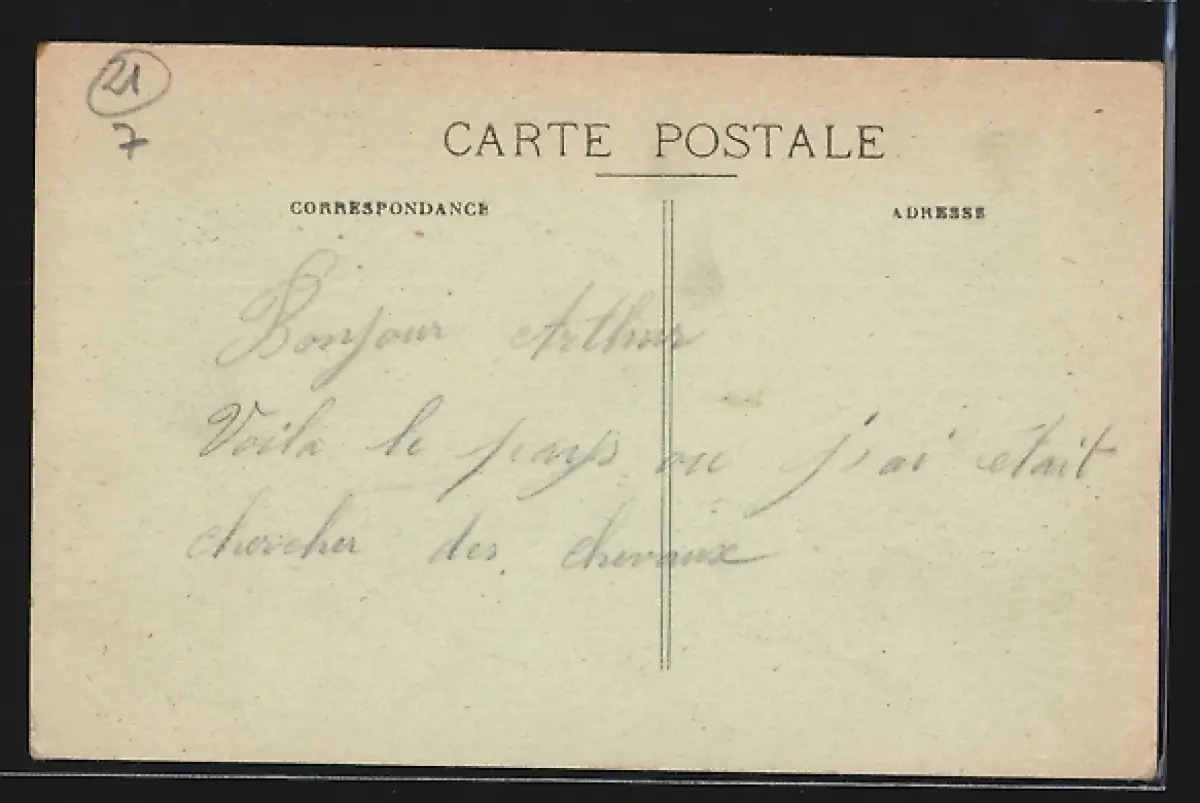 21
7
CARTE POSTALE
CORRESPONDANCE
ADRESSE
Bonjour Arthur
Voila le pays ou j'ai était
chercher des chevaux